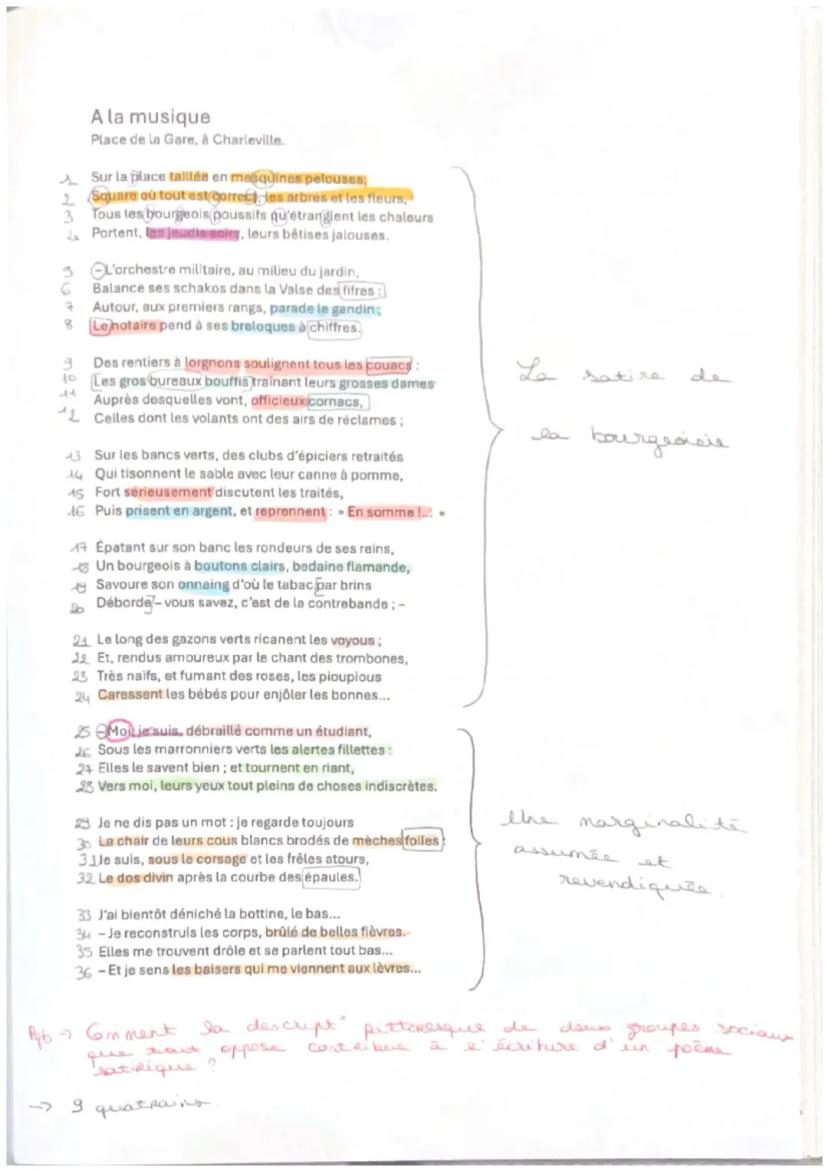 A la musique
Place de la Gare, à Charleville.
1 Sur la place taillée en mesquines pelouses,
2 Square où tout est correct, les arbres et les fleurs,
3 Tous les bourgeois poussifs qu'étranglent les chaleurs
4 Portent, les jeudis soirs, leurs bêtises jalouses.
5 – L'orchestre militaire, au milieu du jardin,
6 Balance ses schakos dans la Valse des fifres :
7 Autour, aux premiers rangs, parade le gandin ;
8 Le notaire pend à ses breloques à chiffres.
9 Des rentiers à lorgnons soulignent tous les couacs :
10 Les gros bureaux bouffis traînant leurs grosses dames
11 Auprès desquelles vont, officieux cornacs,
12 Celles dont les volants ont des airs de réclames ;
La satire de
la bourgeoisie
13 Sur les bancs verts, des clubs d'épiciers retraités
14 Qui tisonnent le sable avec leur canne à pomme,
15 Fort sérieusement discutent les traités,
16 Puis prisent en argent, et reprennent : « En somme !... »
17 Épatant sur son banc les rondeurs de ses reins,
18 Un bourgeois à boutons clairs, bedaine flamande,
19 Savoure son onnaing d'où le tabac par brins
20 Déborde – vous savez, c'est de la contrebande ; –
21 Le long des gazons verts ricanent les voyous ;
22 Et, rendus amoureux par le chant des trombones,
23 Très naïfs, et fumant des roses, les pioupious
24 Caressent les bébés pour enjôler les bonnes...
25 – Moi, je suis, débraillé comme un étudiant,
26 Sous les marronniers verts les alertes fillettes :
27 Elles le savent bien ; et tournent en riant,
28 Vers moi, leurs yeux tout pleins de choses indiscrètes.
29 Je ne dis pas un mot : je regarde toujours
30 La chair de leurs cous blancs brodés de mèches folles :
31 Je suis, sous le corsage et les frêles atours,
32 Le dos divin après la courbe des épaules.
Une marginalité
assumée et
revendiquée
33 J'ai bientôt déniché la bottine, le bas...
34 – Je reconstruis les corps, brûlé de belles fièvres.
35 Elles me trouvent drôle et se parlent tout bas...
36 – Et je sens les baisers qui me viennent aux lèvres...
Pb -> Comment la descript° pittoresque de deux groupes sociaux
que tout oppose contribue à l'écriture d'un poème
satirique ?
-> 9 quatrains